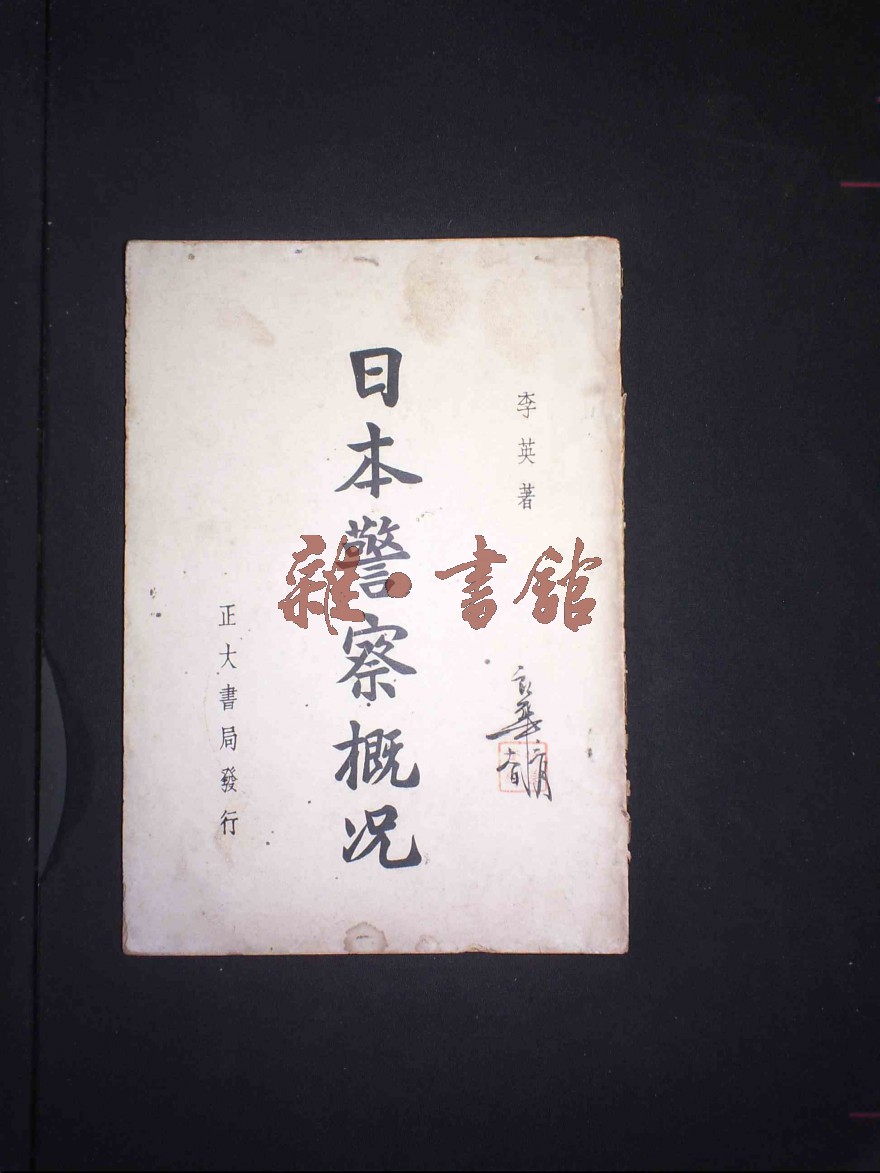 李英著
日本警察概况
正大書局發行
雜·書館